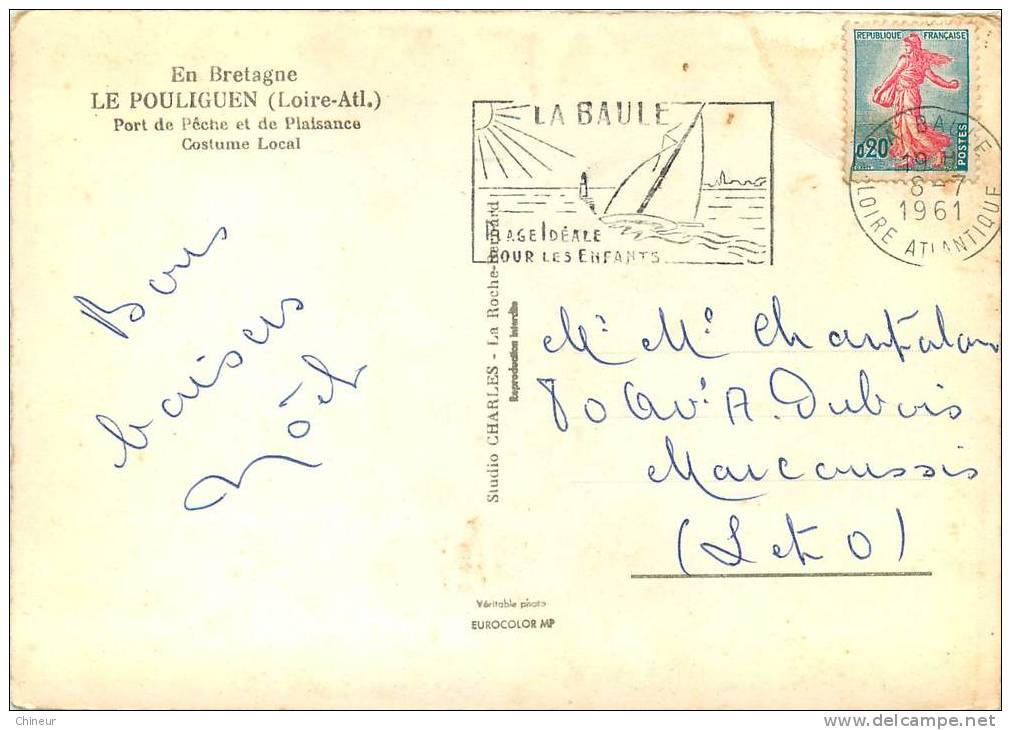 En Bretagne
LE POULIGUEN (Loire-Atl.)
Port de Pêche et de Plaisance
Costume Local
LA BAULE
PLAGE IDÉALE
POUR LES ENFANTS
REPUBLIQUE FRANÇAISE
0,20
POSTES
LA BAULE
19 H
8-7
1961
LOIRE ATLANTIQUE
Bons
baisers
Nöel
Studio CHARLES - La Roche-Bernard
Reproduction interdite
Mr Me
80 Av. A. Dubois
Marcoussis
(S et O)
Véritable photo
EUROCOLOR MP
Chineur
delcampe.net